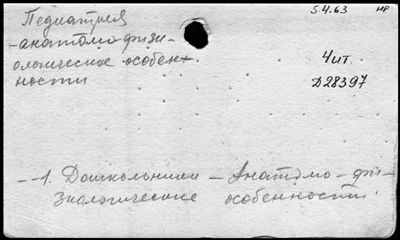 Педиатрия
5.4.63 нр
-анатомо-физи-
ологические особен-
ности
Чит.
Д28397
--1. Дошкольники - Анатомо-фи-
зиологические особенности.